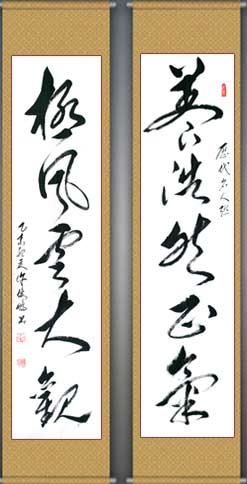 養浩然正氣
歷代名人
極風雲大觀
乙未
書